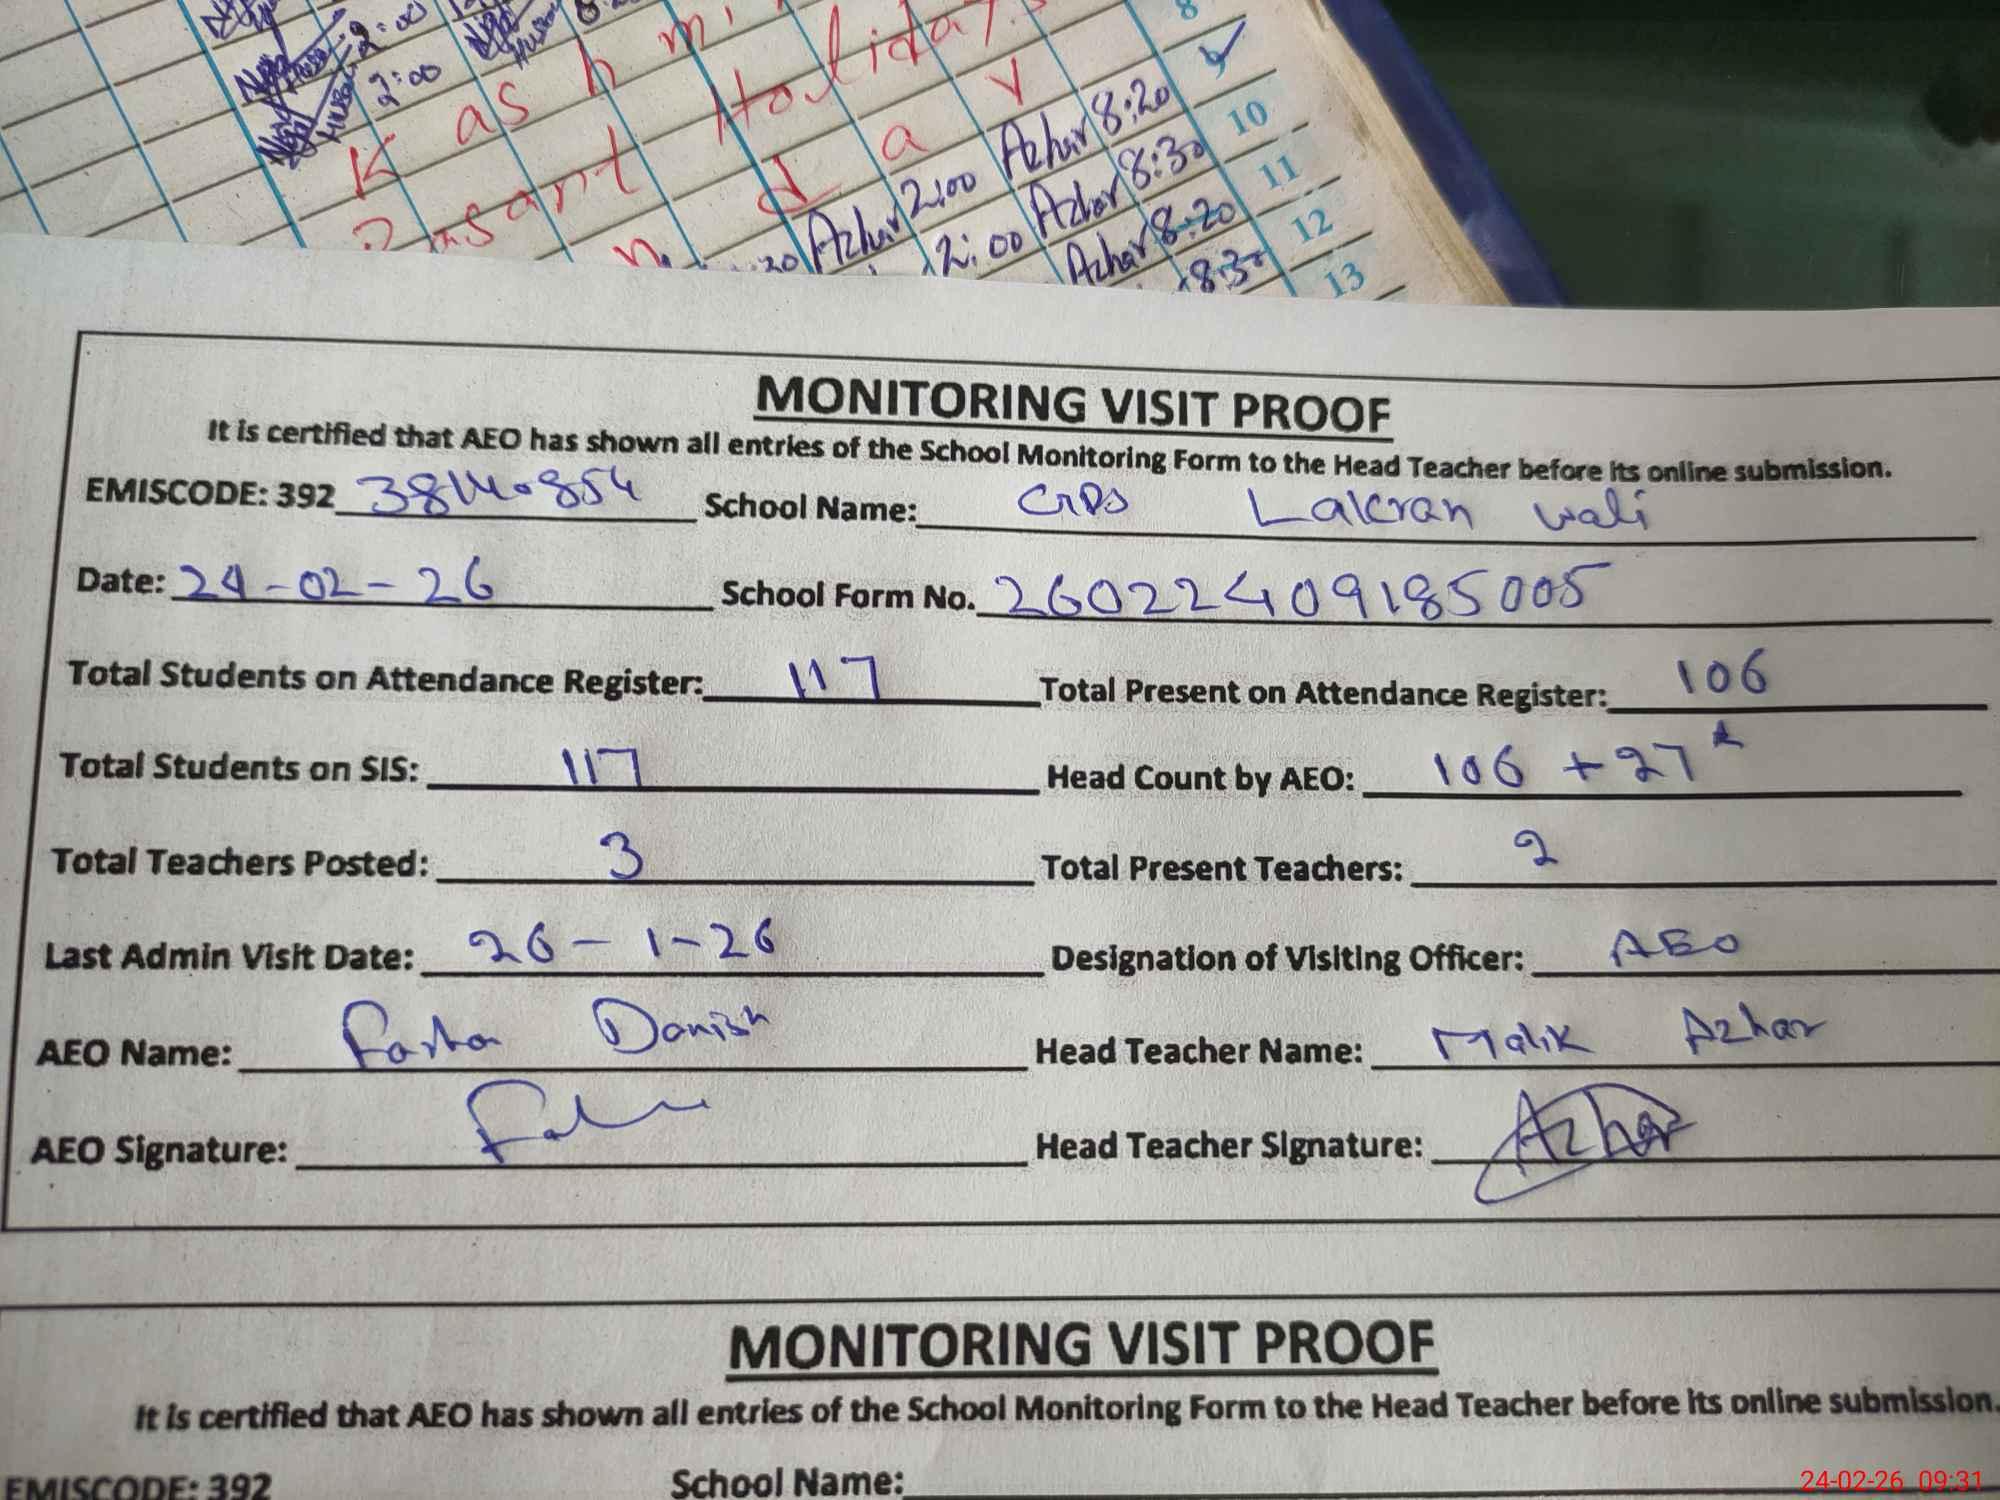 8
2:00
9
K a s h m i
2:00
Holiday
10
Basant d a y
Azhar 8:20
11
Azhar 2:00 Azhar 8:30
12
:20 2:00 Azhar 8:20
13
8:30
MONITORING VISIT PROOF
It is certified that AEO has shown all entries of the School Monitoring Form to the Head Teacher before its online submission.
EMISCODE: 392 School Name: GPS Lakran wali
Date: 24-02-26 School Form No. 26022409185005
Total Students on Attendance Register: 117 Total Present on Attendance Register: 106
Total Students on SIS: 117 Head Count by AEO: 106 + 27
Total Teachers Posted: 3 Total Present Teachers: 2
Last Admin Visit Date: 26-1-26 Designation of Visiting Officer: AEO
AEO Name: Farhan Danish Head Teacher Name: Malik Azhar
AEO Signature: Head Teacher Signature: Azhar
MONITORING VISIT PROOF
It is certified that AEO has shown all entries of the School Monitoring Form to the Head Teacher before its online submission.
EMISCODE: 392 School Name:
24-02-26 09:31